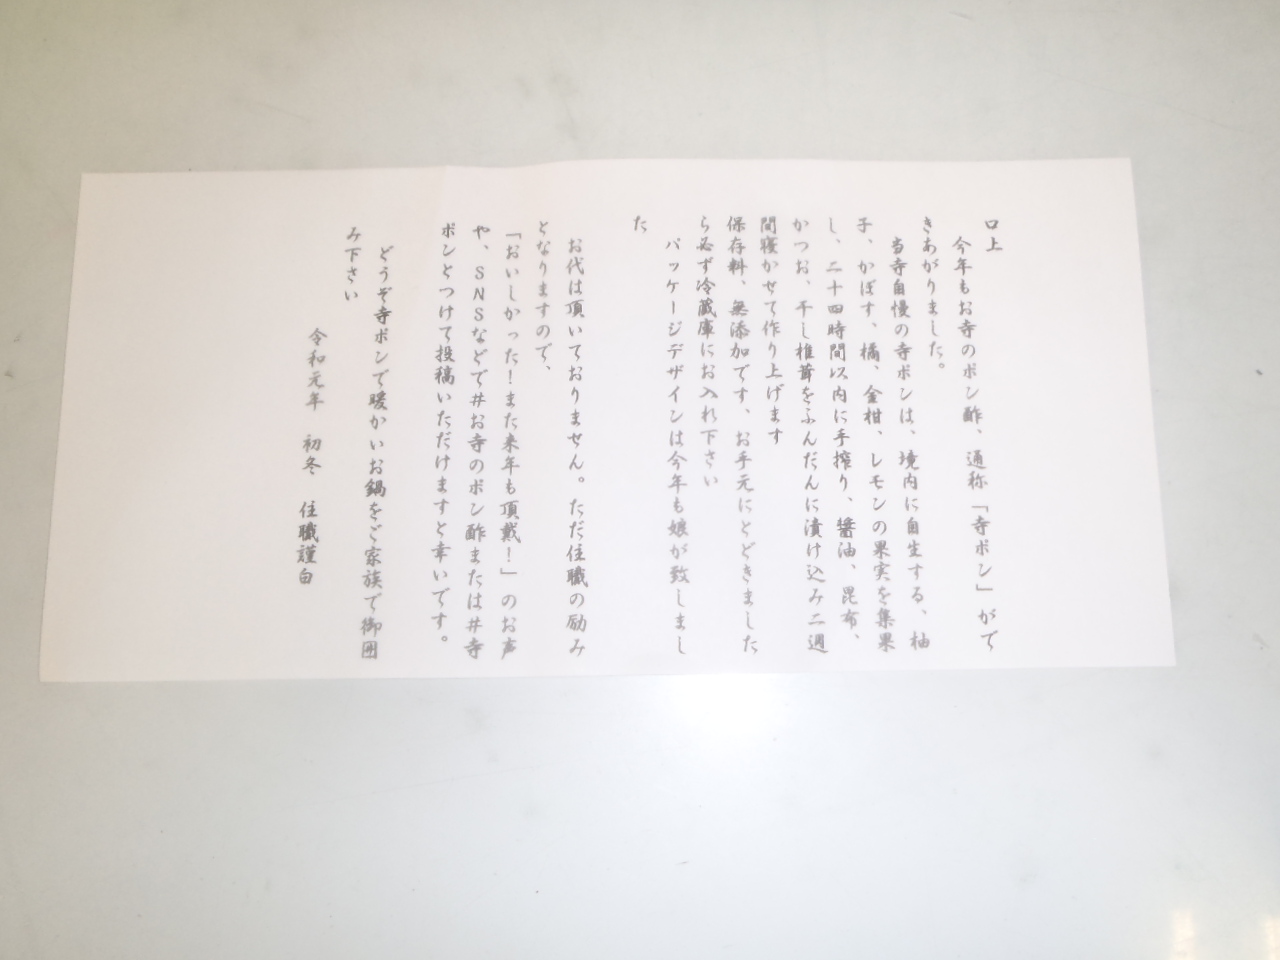 口上
今年もお寺のポン酢、通称「寺ポン」がで
きあがりました。
当寺自慢の寺ポンは、境内に自生する、柚
子、かぼす、橘、金柑、レモンの果実を集果
し、二十四時間以内に手搾り、醤油、昆布、
かつお、干し椎茸をふんだんに漬け込み二週
間寝かせて作り上げます
保存料、無添加です、お手元にとどきました
ら必ず冷蔵庫にお入れ下さい
パッケージデザインは今年も娘が致しまし
た
お代は頂いておりません。ただ住職の励み
となりますので、
「おいしかった！また来年も頂戴！」のお声
や、SNSなどで#お寺のポン酢または#寺
ポンとつけて投稿いただけますと幸いです。
どうぞ寺ポンで暖かいお鍋をご家族で御囲
み下さい
令和元年 初冬 住職謹白